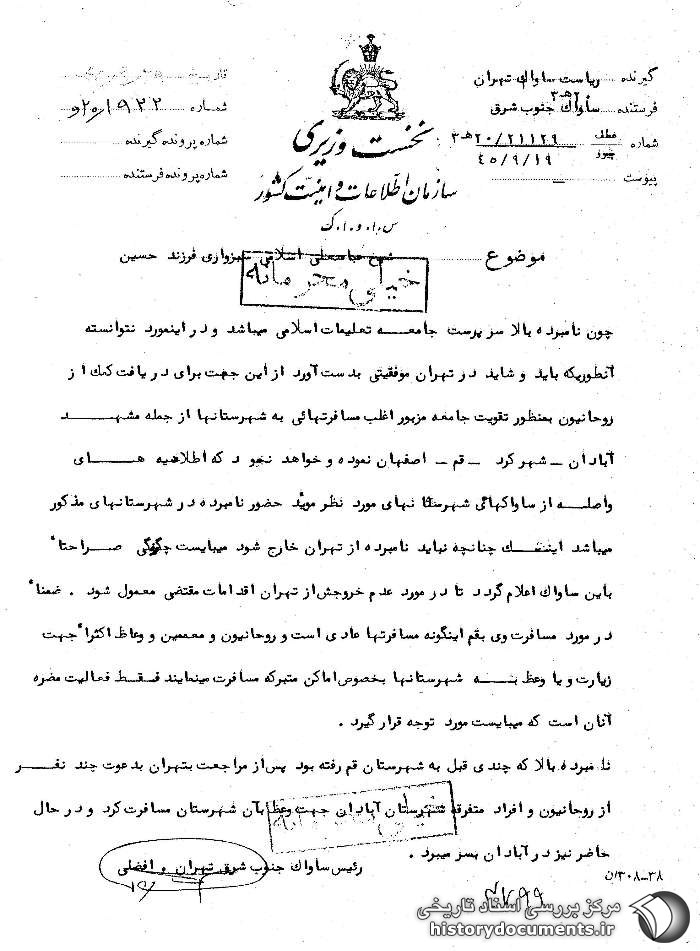 گیرنده ریاست ساواك تهران ۲۰هـ۳
فرستنده ساواك جنوب شرق
شماره ۲۰/۲۱۱۲۹هـ۳
۴۵/۹/۱۹
پیوست ـــ
نخست وزیری
سازمان اطلاعات و امنیت کشور
س.ا.و.ا.ک
شماره
شماره پرونده گیرنده
شماره پرونده فرستنده
موضوع شیخ عباسعلی اسلامی سبزواری فرزند حسین
خیلی محرمانه
چون نامبرده بالا سرپرست جامعه تعلیمات اسلامی میباشد و در اینمورد نتوانسته
آنطوریکه باید و شاید در تهران موفقیتی بدست آورد از این جهت برای دریافت کمك از
روحانیون بمنظور تقویت جامعه مزبور اغلب مسافرتهائی به شهرستانها از جمله مشهد
آبادان ـ شهرکرد ـ قم ـ اصفهان نموده و خواهد نمود که اطلاعیه های
واصله از ساواکهائی شهرستانهای مورد نظر موید حضور نامبرده در شهرستانهای مذکور
میباشد اینك چنانچه نباید نامبرده از تهران خارج شود میبایست چگونگی صراحتا"
باین ساواك اعلام گردد تا در مورد عدم خروجش از تهران اقدامات مقتضی معمول شود . ضمنا"
در مورد مسافرت وی بقم اینگونه مسافرتها عادی است و روحانیون و معممین و وعاظ اکثرا" جهت
زیارت و یا وعظ به شهرستانها بخصوص اماکن متبرکه مسافرت مینمایند فقط فعالیت مضره
آنان است که میبایست مورد توجه قرار گیرد .
نامبرده بالا که چندی قبل به شهرستان قم رفته بود پس از مراجعت بتهران بدعوت چند نفر
از روحانیون و افراد متفرقه شهرستان آبادان جهت وعظ بآن شهرستان مسافرت کرد و در حال
حاضر نیز در آبادان بسر میبرد .
خیلی محرمانه
رئیس ساواك جنوب شرق تهران و افضلی
۳۰۸ـ۳۸/ن
مرکز بررسی اسناد تاریخی
historydocuments.ir